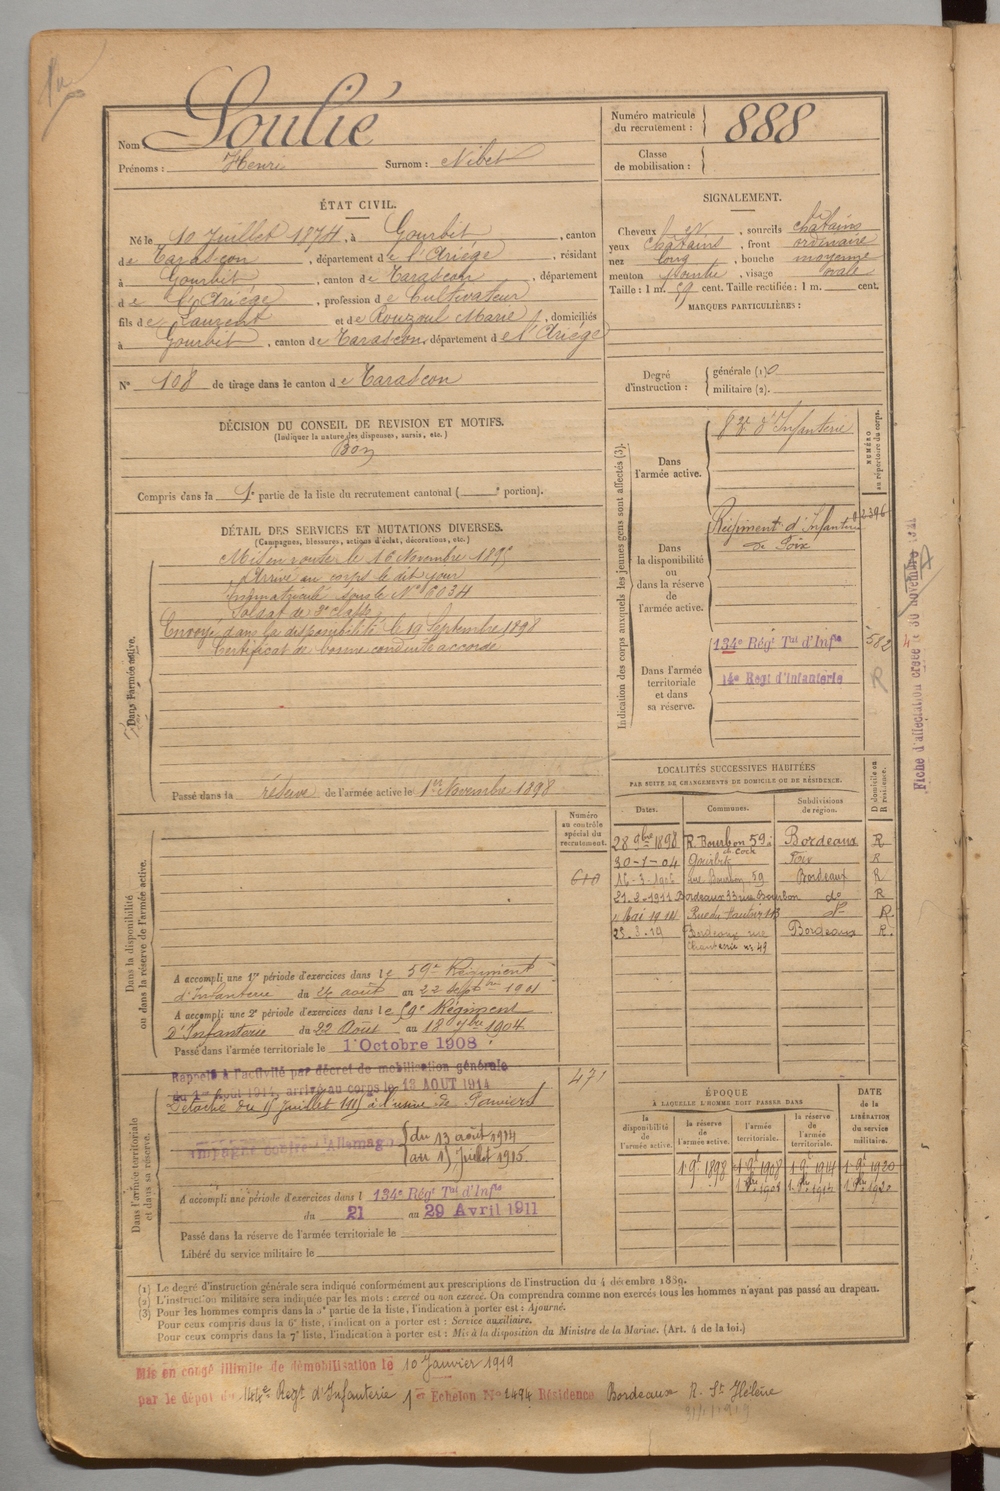 Nom : Soulié
Prénoms : Henri Surnom : Nibet
ÉTAT CIVIL.
Né le 10 Juillet 1874, à Gourbit, canton
de Tarascon, département de l'Ariége, résidant
à Gourbit, canton de Tarascon, département
de l'Ariége, profession de Cultivateur
fils de Laurent et de Rouzoul Marie, domiciliés
à Gourbit, canton de Tarascon, département de l'Ariége
N° 108 de tirage dans le canton de Tarascon
DÉCISION DU CONSEIL DE REVISION ET MOTIFS.
(Indiquer la nature des dispenses, sursis, etc.)
Bon
Compris dans la 1e partie de la liste du recrutement cantonal ( e portion).
DÉTAIL DES SERVICES ET MUTATIONS DIVERSES.
(Campagnes, blessures, actions d'éclat, décorations, etc.)
Dans l'armée active.
Mis en route le 16 Novembre 1895
Arrivé au corps le dit jour
Immatriculé sous le N° 6034
Soldat de 2e classe
Envoyé dans la disponibilité le 19 Septembre 1898
Certificat de bonne conduite accordé
Passé dans la réserve de l'armée active le 1er Novembre 1898
Numéro
au contrôle
spécial du
recrutement.
Dans la disponibilité
ou dans la réserve de l'armée active.
A accompli une 1re période d'exercices dans le 59e Régiment
d'Infanterie du 24 août au 22 septbre 1901
A accompli une 2e période d'exercices dans le 59e Régiment
D'Infanterie du 22 Août au 18 7bre 1904
Passé dans l'armée territoriale le 1 Octobre 1908
Dans l'armée territoriale
et dans sa réserve.
Rappelé à l'activité par décret de mobilisation générale
du 1er Aout 1914, arrivé au corps le 12 AOUT 1914
471
Détaché du 15 Juillet 1915 à l'usine de Pamiers
Campagne contre l'Allemagne (du 13 août 1914
(au 15 Juillet 1915
A accompli une période d'exercices dans l 134e Régt Tal d'Infie
du 21 au 29 Avril 1911
Passé dans la réserve de l'armée territoriale le
Libéré du service militaire le
Numéro matricule
du recrutement : 888
Classe
de mobilisation :
SIGNALEMENT.
Cheveux et, sourcils châtains
yeux châtains, front ordinaire
nez long, bouche moyenne
menton pointu, visage ovale
Taille : 1 m. 59 cent. Taille rectifiée : 1 m. cent.
MARQUES PARTICULIÈRES :
Degré
d'instruction :
générale (1) 0
militaire (2).
Indication des corps auxquels les jeunes gens sont affectés (3).
NUMÉRO
au répertoire du corps.
Dans
l'armée active.
8 d'Infanterie
Dans
la disponibilité
ou
dans la réserve
de
l'armée active.
Régiment d'Infanterie 2396
de Foix
Dans l'armée
territoriale
et dans
sa réserve.
134e Régt Tal d'Infie 582
14e Regt d'Infanterie R
Fiche d'affectation créée le 30 novembre
LOCALITÉS SUCCESSIVES HABITÉES
PAR SUITE DE CHANGEMENTS DE DOMICILE OU DE RÉSIDENCE.
Dates. Communes. Subdivisions de région. D domicile ou R résidence.
28 9bre 1898 R. Bourbon 59 Bordeaux R
30-1-04 Gourbit Foix R
16-3-1906 rue Bourbon 59 Bordeaux R
21.2.1911 Bordeaux 33 rue Bourbon do R
Mai 1914 Rue du Hautoir 113 do R
23.3.19 Bordeaux rue Bordeaux R.
ÉPOQUE
A LAQUELLE L'HOMME DOIT PASSER DANS
DATE
de la
LIBÉRATION
du service
militaire.
la disponibilité de l'armée active. la réserve de l'armée active. l'armée territoriale. la réserve de l'armée territoriale.
1 9t 1898 1 9t 1908 1 9t 1914 1 9t 1920
1. 8bre 1908 1. 8bre 1914 1. 8bre 1920
(1) Le degré d'instruction générale sera indiqué conformément aux prescriptions de l'instruction du 4 décembre 1889.
(2) L'instruction militaire sera indiquée par les mots : exercé ou non exercé. On comprendra comme non exercés tous les hommes n'ayant pas passé au drapeau.
(3) Pour les hommes compris dans la 5e partie de la liste, l'indication à porter est : Ajourné.
Pour ceux compris dans la 6e liste, l'indication à porter est : Service auxiliaire.
Pour ceux compris dans la 7e liste, l'indication à porter est : Mis à la disposition du Ministre de la Marine. (Art. 4 de la loi.)
Mis en congé illimité de démobilisation le 10 Janvier 1919
par le dépôt du 144e Regt d'Infanterie 1er Echelon No 2494 Résidence Bordeaux R. St Hélène